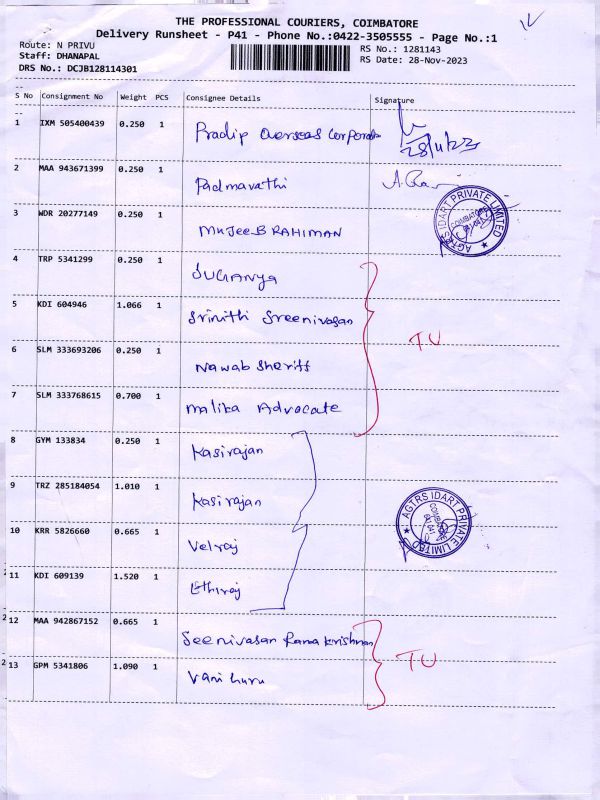 THE PROFESSIONAL COURIERS, COIMBATORE
Delivery Runsheet - P41 - Phone No.:0422-3505555 - Page No.:1
Route: N PRIVU
RS No.: 1281143
Staff: DHANAPAL
RS Date: 28-Nov-2023
DRS No.: DCJB128114301
S No Consignment No Weight PCS Consignee Details Signature
1 IXM 505400439 0.250 1 Pradip Overseas Corporate
28/11/23
2 MAA 943671399 0.250 1 Padmavathi
3 WDR 20277149 0.250 1 MUJEEB RAHIMAN
AGTRS IDART PRIVATE LIMITED
COIMBATORE
4 TRP 5341299 0.250 1 SUGANYA
5 KDI 604946 1.066 1 Srinithi Sreenivasan
TU
6 SLM 333693206 0.250 1 Nawab Sheriff
7 SLM 333768615 0.700 1 Malika Advocate
8 GYM 133834 0.250 1 Kasirajan
9 TRZ 285184054 1.010 1 Kasirajan
AGTRS IDART PRIVATE LIMITED
10 KRR 5826660 0.665 1 Velraj
11 KDI 609139 1.520 1 Ethiraj
12 MAA 942867152 0.665 1 Seenivasan Rama Krishnan
13 GPM 5341806 1.090 1 Vani
TU